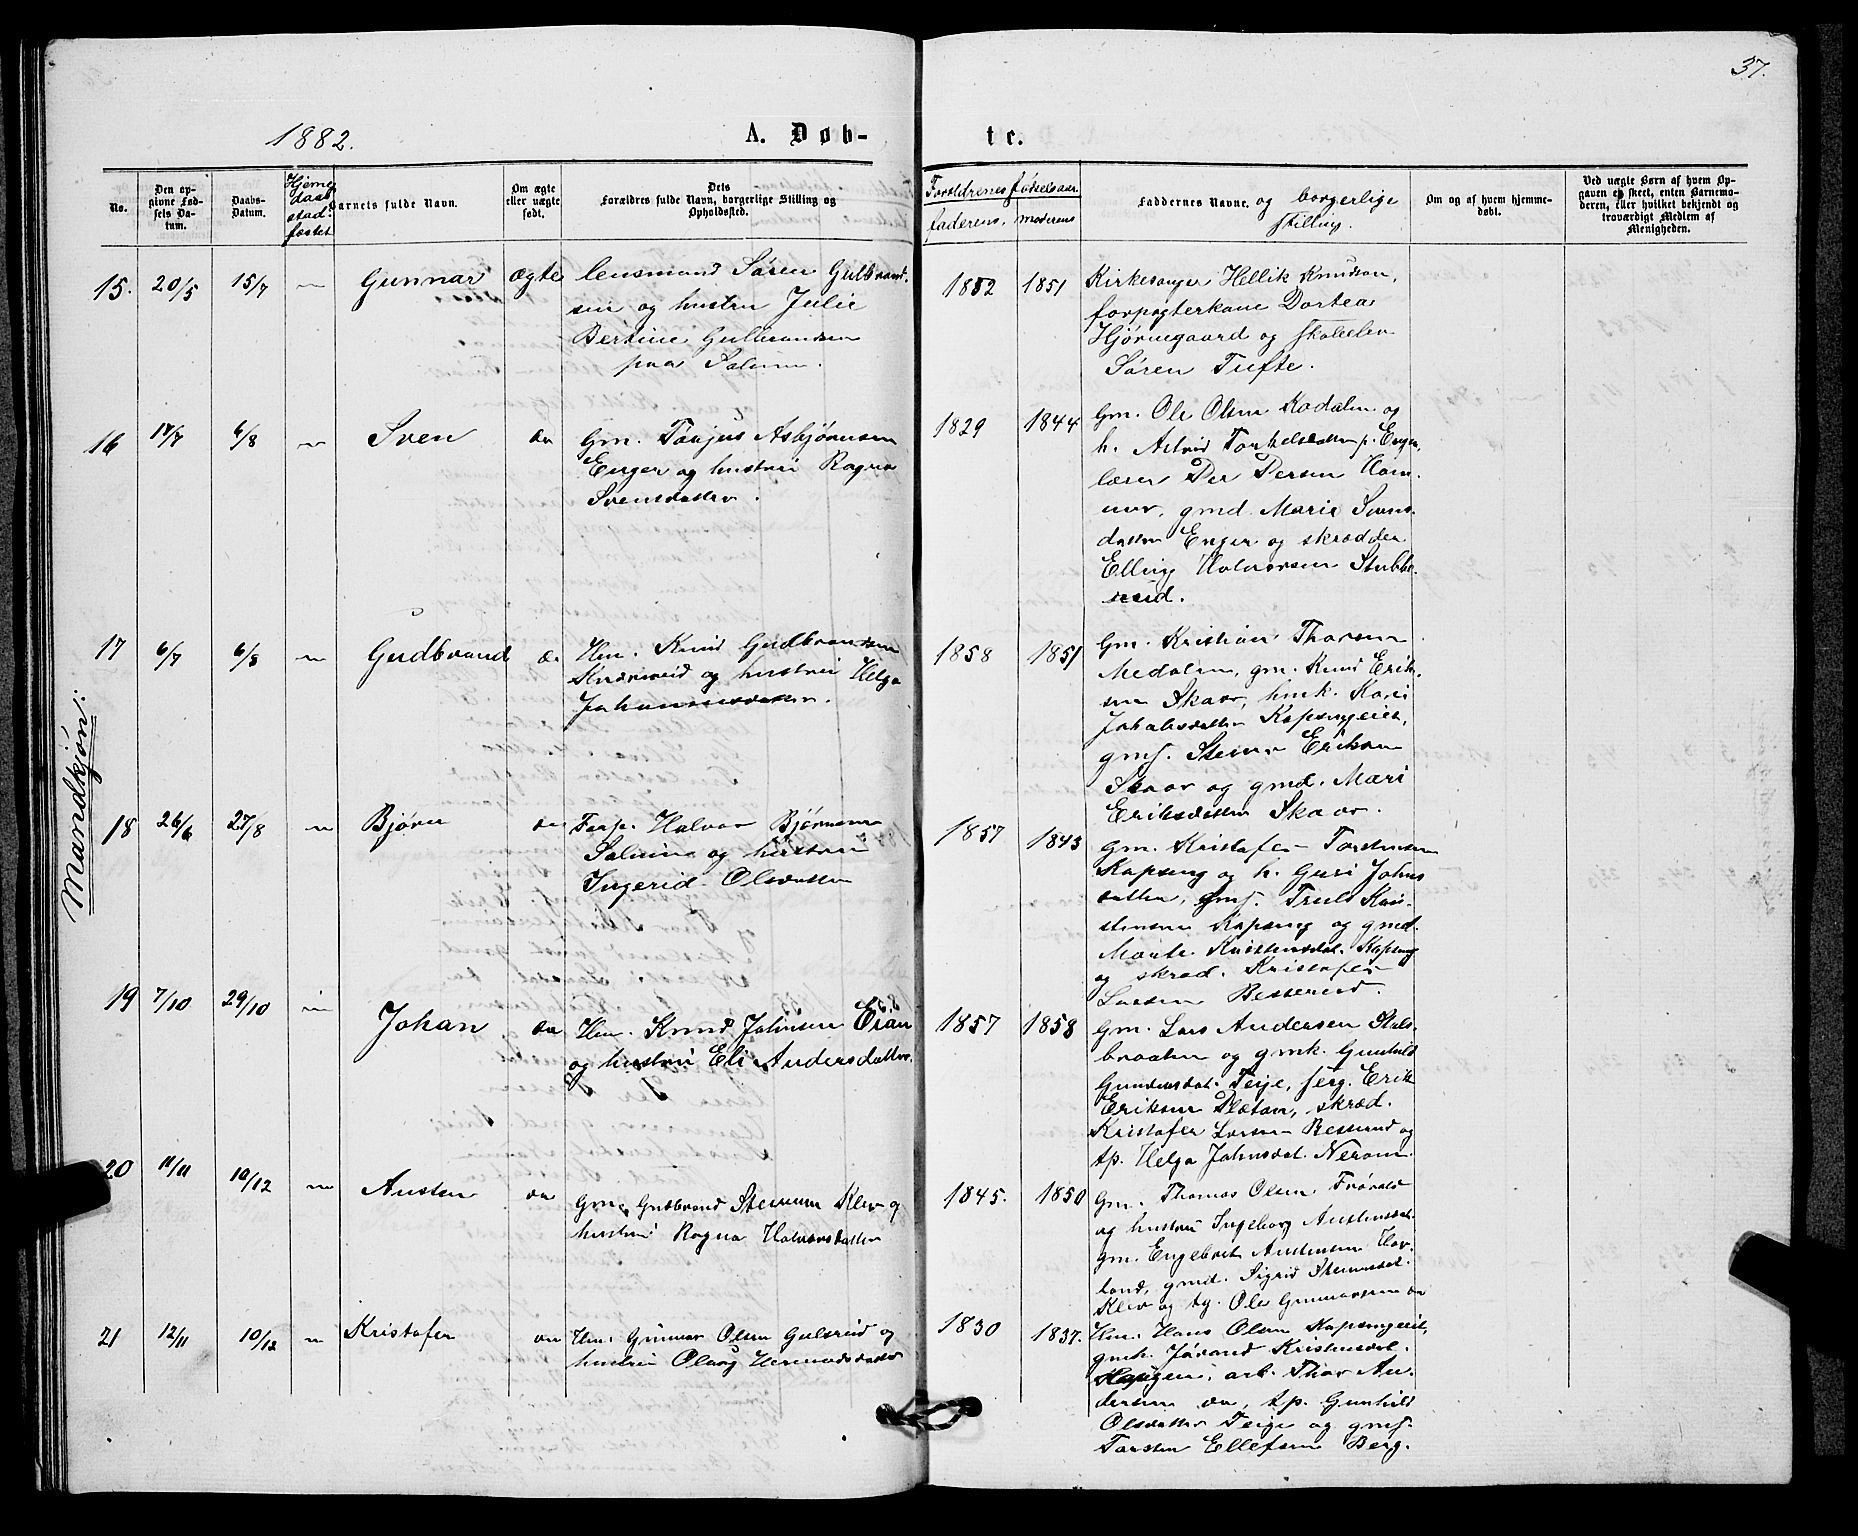 37.
1882.
A. Døb-
te.
No.
Den op-
givne Fød-
sels Da-
tum.
Daabs-
Datum.
Hjemme
daab
stad-
fæstet
Barnets fulde Navn.
Om ægte
eller uægte
født.
Dets
Forældres fulde Navn, borgerlige Stilling og
Opholdssted.
Forældrenes fødselsaar.
faderens.
moderens
Faddernes Navne. og borgerlige
stilling.
Om og af hvem hjemme-
døbt.
Ved uægte Børn af hvem Op-
gaven er skeet, enten Barnemo-
deren, eller hvilket bekjendt og
troværdigt Medlem af
Menigheden.
Mandkjøn:
15. 20/5 15/7 — Gunnar ægte
lensmand Søren Gulbrand-
sen og hustru Julie
Bertine Gulbrandsen
paa Solum.
1852 1851
Kirkesanger Hellik Knudsen,
forpagterkone Dortea
Hjørnegaard og skolelær
Søren Tufte.
16 17/7 6/8 — Sven do
Gm. Torjus Asbjørnsen
Enger og hustru Ragna
Svensdatter.
1829 1844
Gm. Ole Olsen Kodalen og
h. Astrid Torkelsdatter p. Enger,
lærer Per Persen Ham-
mer, gmd. Marie Svens-
datter Enger og skrædder
Elling Halvorsen Stubbe-
rud.
17 6/7 6/8 — Gudbrand do
Hm. Knud Gudbrandsen
og hustru Helga
Johannesdatter.
1858 1851
Gm. Kristian Thorsen
Medalen, gm. Knud Erik-
sen Skaar, hmk. Kari
Jakobsdatter Kapsengeiet,
gms. Steiner Eriksen
Skaar og gmd. Mari
Eriksdatter Skaar.
18 26/6 27/8 — Bjørn do
Forp. Halvor Bjørnsen
Solum og hustru
Ingerid Olsdatter
1857 1843
Gm. Kristofer Torstensen
Kapseng og h. Guri Johns-
datter, gms. Truls Kri-
stensen Kapseng og gmd.
Marte Kristensdat. Kapseng
og skræd. Kristofer
Larsen Besserud.
19 7/10 29/10 — Johan do
Hm. Knud Johnsen Eian
og hustru Eli Andersdatter.
1857 1858
Gm. Lars Andersen Skals-
braaten og gmk. Gunhild
Gundersdat. Teije, serg. Erik
Eriksen Pletan, skræd.
Kristofer Larsen Besserud og
tp. Helga Johnsdat. Neram.
20 11/11 10/12 — Austen do
Gm. Gudbrand Stensen Klev og
hustru Ragna Halvorsdatter
1845. 1850
Gm. Thomas Olsen Frøvold
og hustru Ingeborg Austensdat.
gm. Engebret Austensen Hav-
land, gmd. Sigrid Stensdat.
Klev og tg. Ole Gunnarsen do
21 12/11 10/12 — Kristofer do
Hm. Gunnar Olsen Gulsrud og
hustru Olaug Hermodsdatter
1830 1837.
Hm. Hans Olsen Kapsengeiet,
gmk. Jørand Kristensdat.
Haugen, arb. Thor An-
dersen do, tp. Gunhild
Olsdatter Teige og gms.
Torsten Ellefsen Berg.